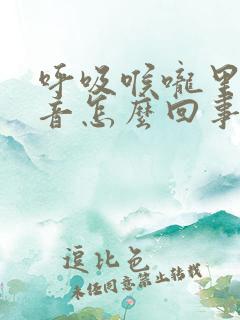 呼吸喉嚨里
音怎麼回事
逗比色
未经同意禁止转载